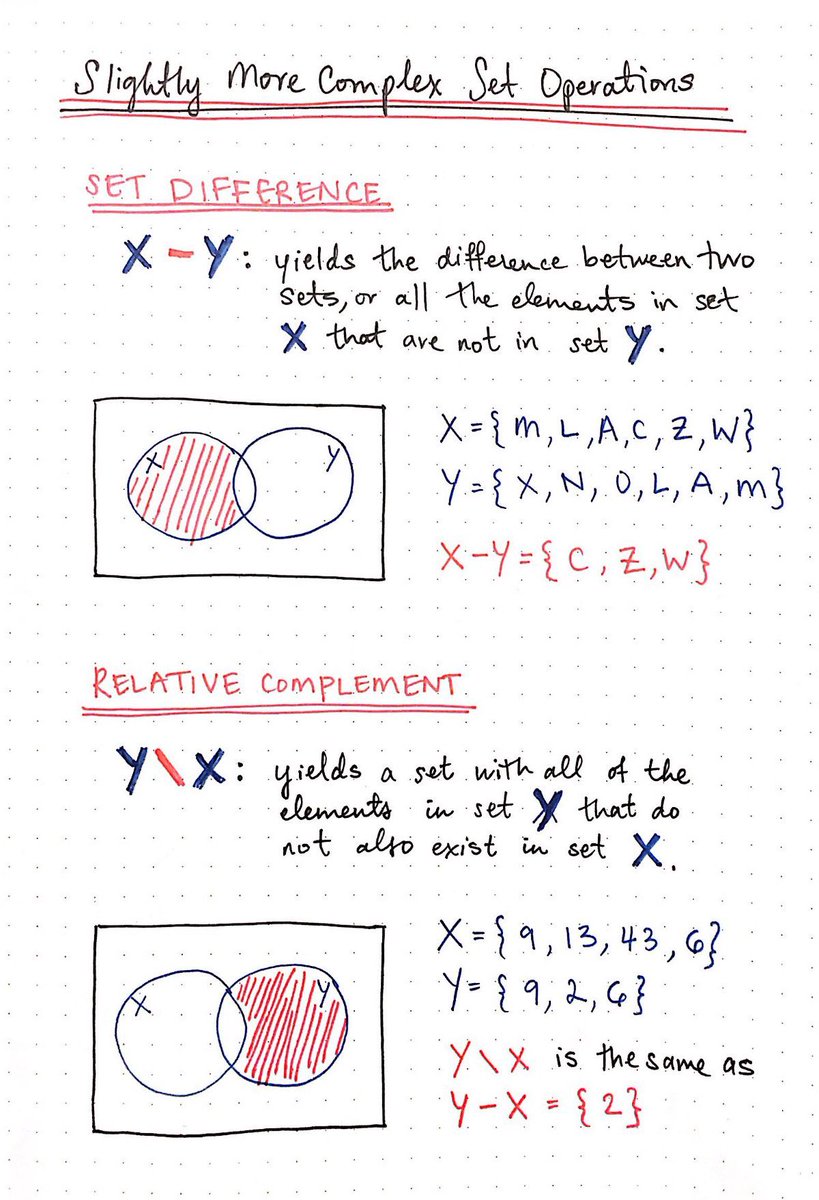 Slightly More Complex Set Operations
SET DIFFERENCE
X - Y: yields the difference between two
sets, or all the elements in set
X that are not in set Y.
X Y
X = {M, L, A, C, Z, W}
Y = {X, N, O, L, A, M}
X-Y = {C, Z, W}
RELATIVE COMPLEMENT
Y \ X: yields a set with all of the
elements in set Y that do
not also exist in set X.
X Y
X = {9, 13, 43, 6}
Y = {9, 2, 6}
Y \ X is the same as
Y - X = {2}